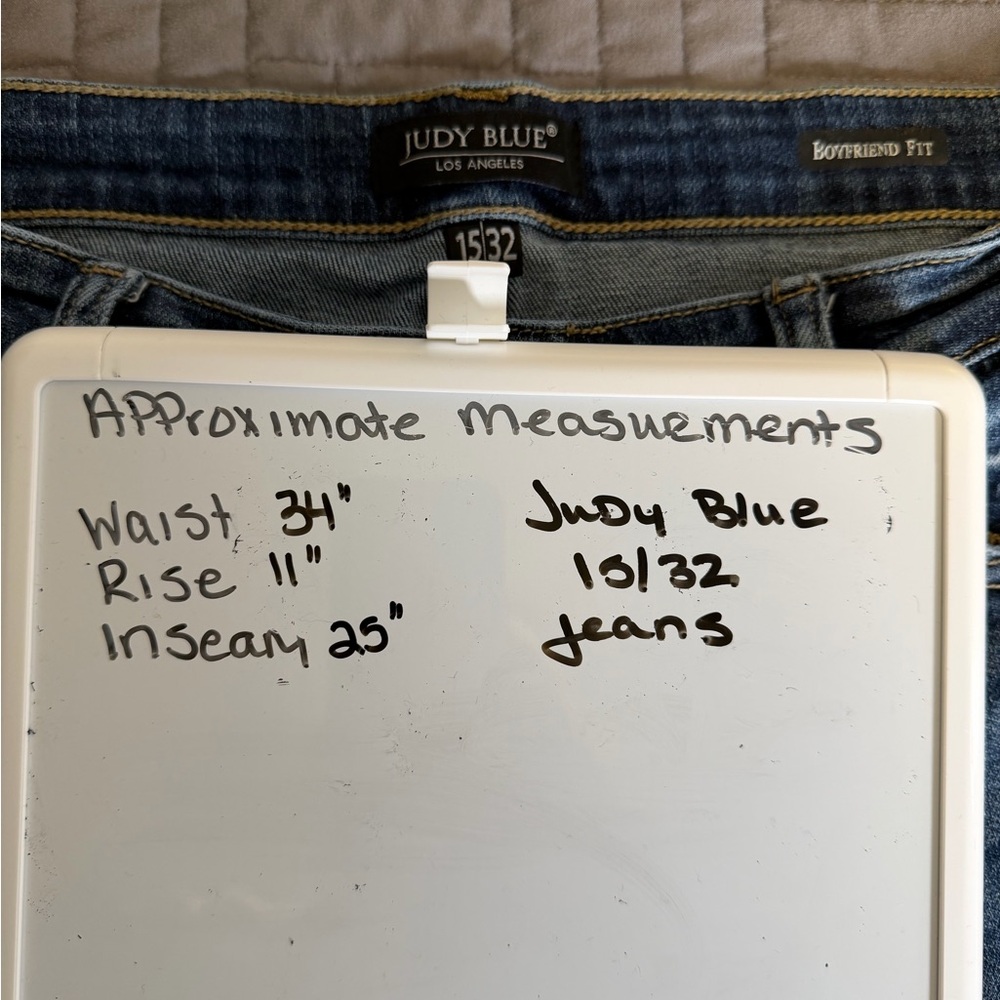 JUDY BLUE®
LOS ANGELES
BOYFRIEND FIT
15|32
Approximate measuements
Waist 34"
Rise 11"
Inseam 25"
Judy Blue
15/32
jeans